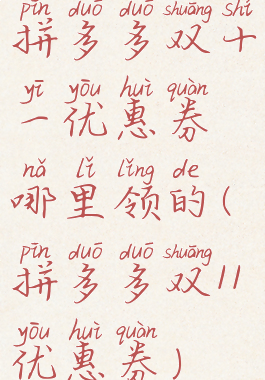 pīn duō duō shuāng shí
拼多多双十
yī yōu huì quàn
一优惠券
nǎ lǐ lǐng de
哪里领的(
pīn duō duō shuāng
拼多多双11
yōu huì quàn
优惠券)